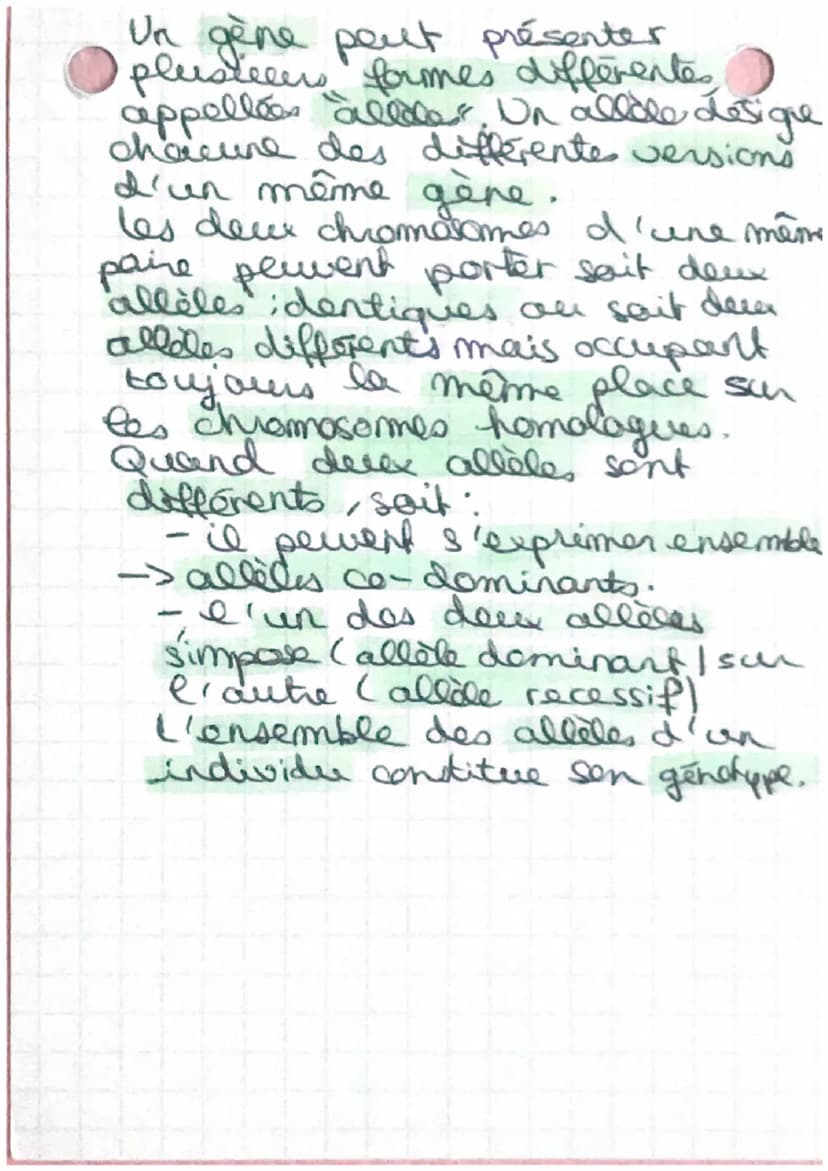 Un gène peut présenter
plusieurs formes différentes
appellées "allèles". Un allèle désigne
chacune des différentes versions
d'un même gène.
Les deux chromosomes d'une même
paire peuvent porter soit deux
allèles identiques ou soit deux
allèles différents mais occupant
toujours la même place sur
les chromosomes homologues.
Quand deux allèles sont
différents, soit :
- il peuvent s'exprimer ensemble
-> allèles co-dominants.
- l'un des deux allèles
s'impose (allèle dominant) sur
l'autre (allèle recessif)
L'ensemble des allèles d'un
individu constitue son génotype.